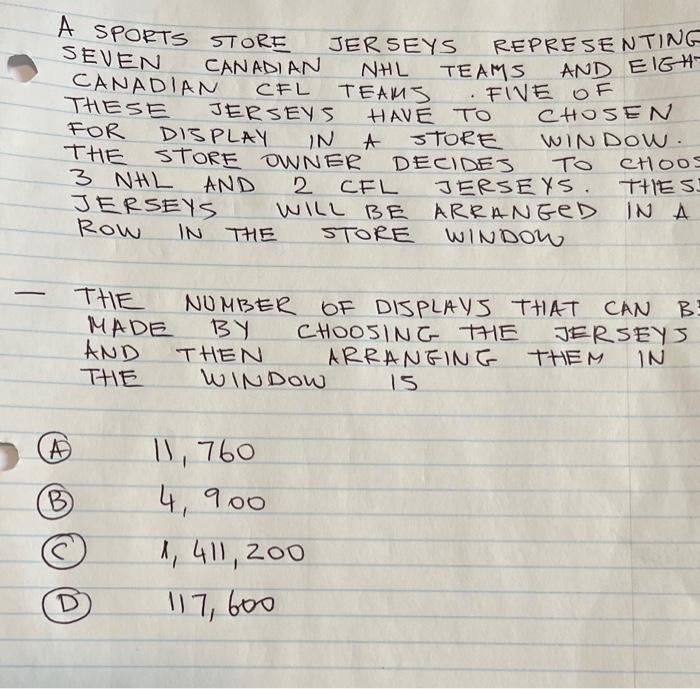 A SPORTS STORE JERSEYS REPRESENTING
SEVEN CANADIAN NHL TEAMS AND EIGHT
CANADIAN CFL TEAMS. FIVE OF
THESE JERSEYS HAVE TO CHOSEN
FOR DISPLAY IN A STORE WINDOW.
THE STORE OWNER DECIDES TO CHOOS
3 NHL AND 2 CFL JERSEYS. THES
JERSEYS WILL BE ARRANGED IN A
ROW IN THE STORE WINDOW
— THE NUMBER OF DISPLAYS THAT CAN B
MADE BY CHOOSING THE JERSEYS
AND THEN ARRANGING THEM IN
THE WINDOW IS
A 11,760
B 4,900
C 1,411,200
D 117,600